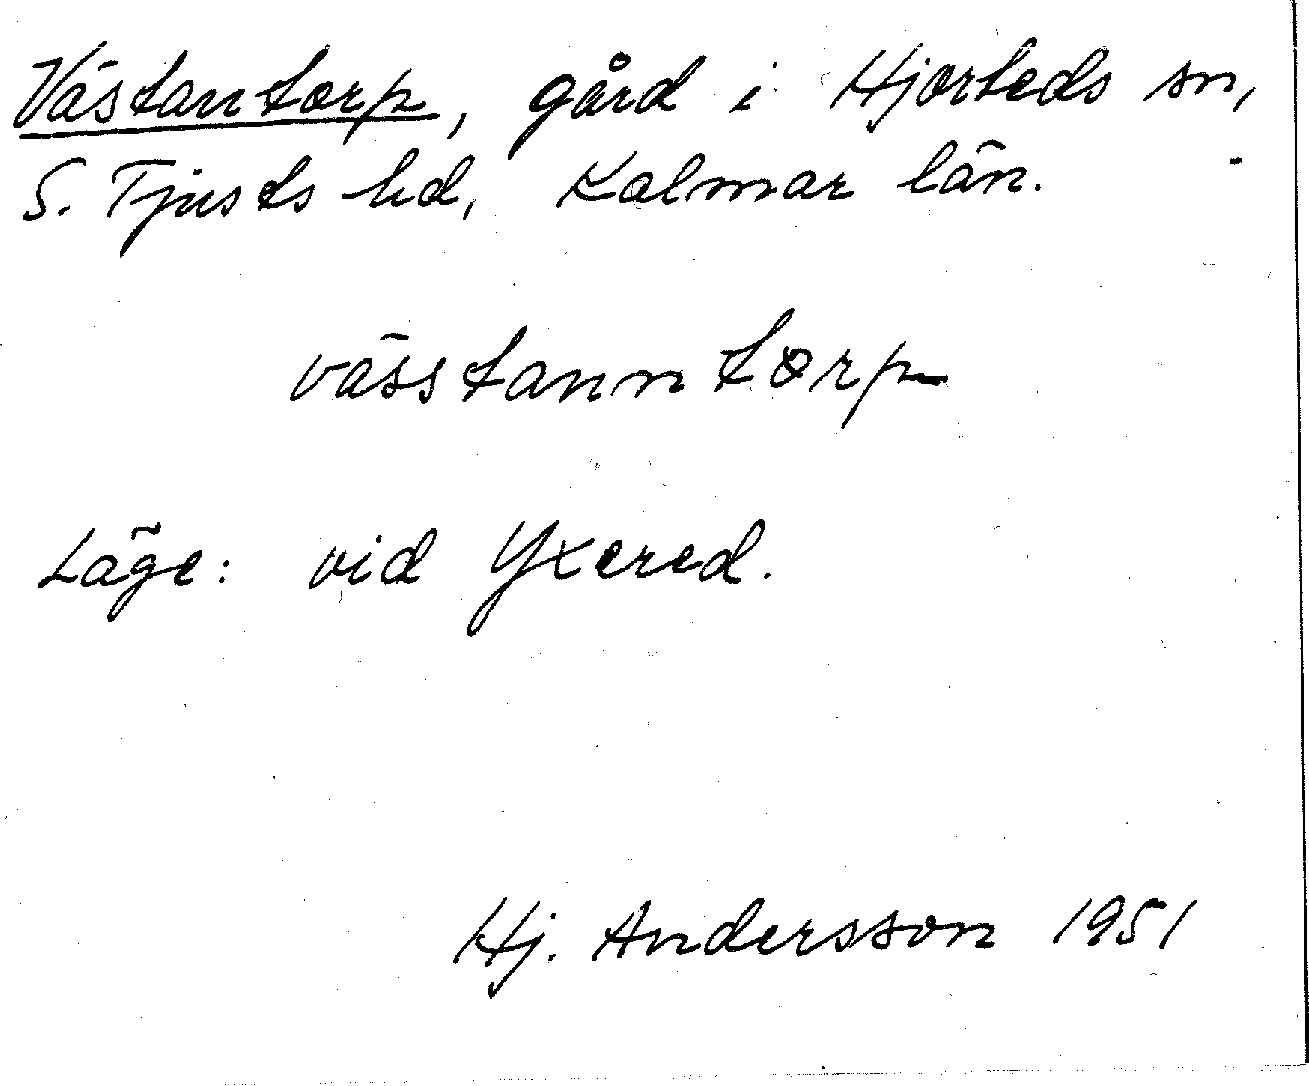 Västantorp, gård i Hjorteds sn,
S. Tjusts hd, Kalmar län.
vässtanntorp
Läge: vid Yxered.
Hj. Andersson 1951